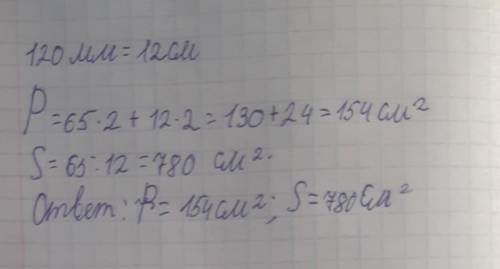 120 мм = 12 см
P = 65·2 + 12·2 = 130 + 24 = 154 см²
S = 65·12 = 780 см².
Ответ: P = 154 см²; S = 780 см²